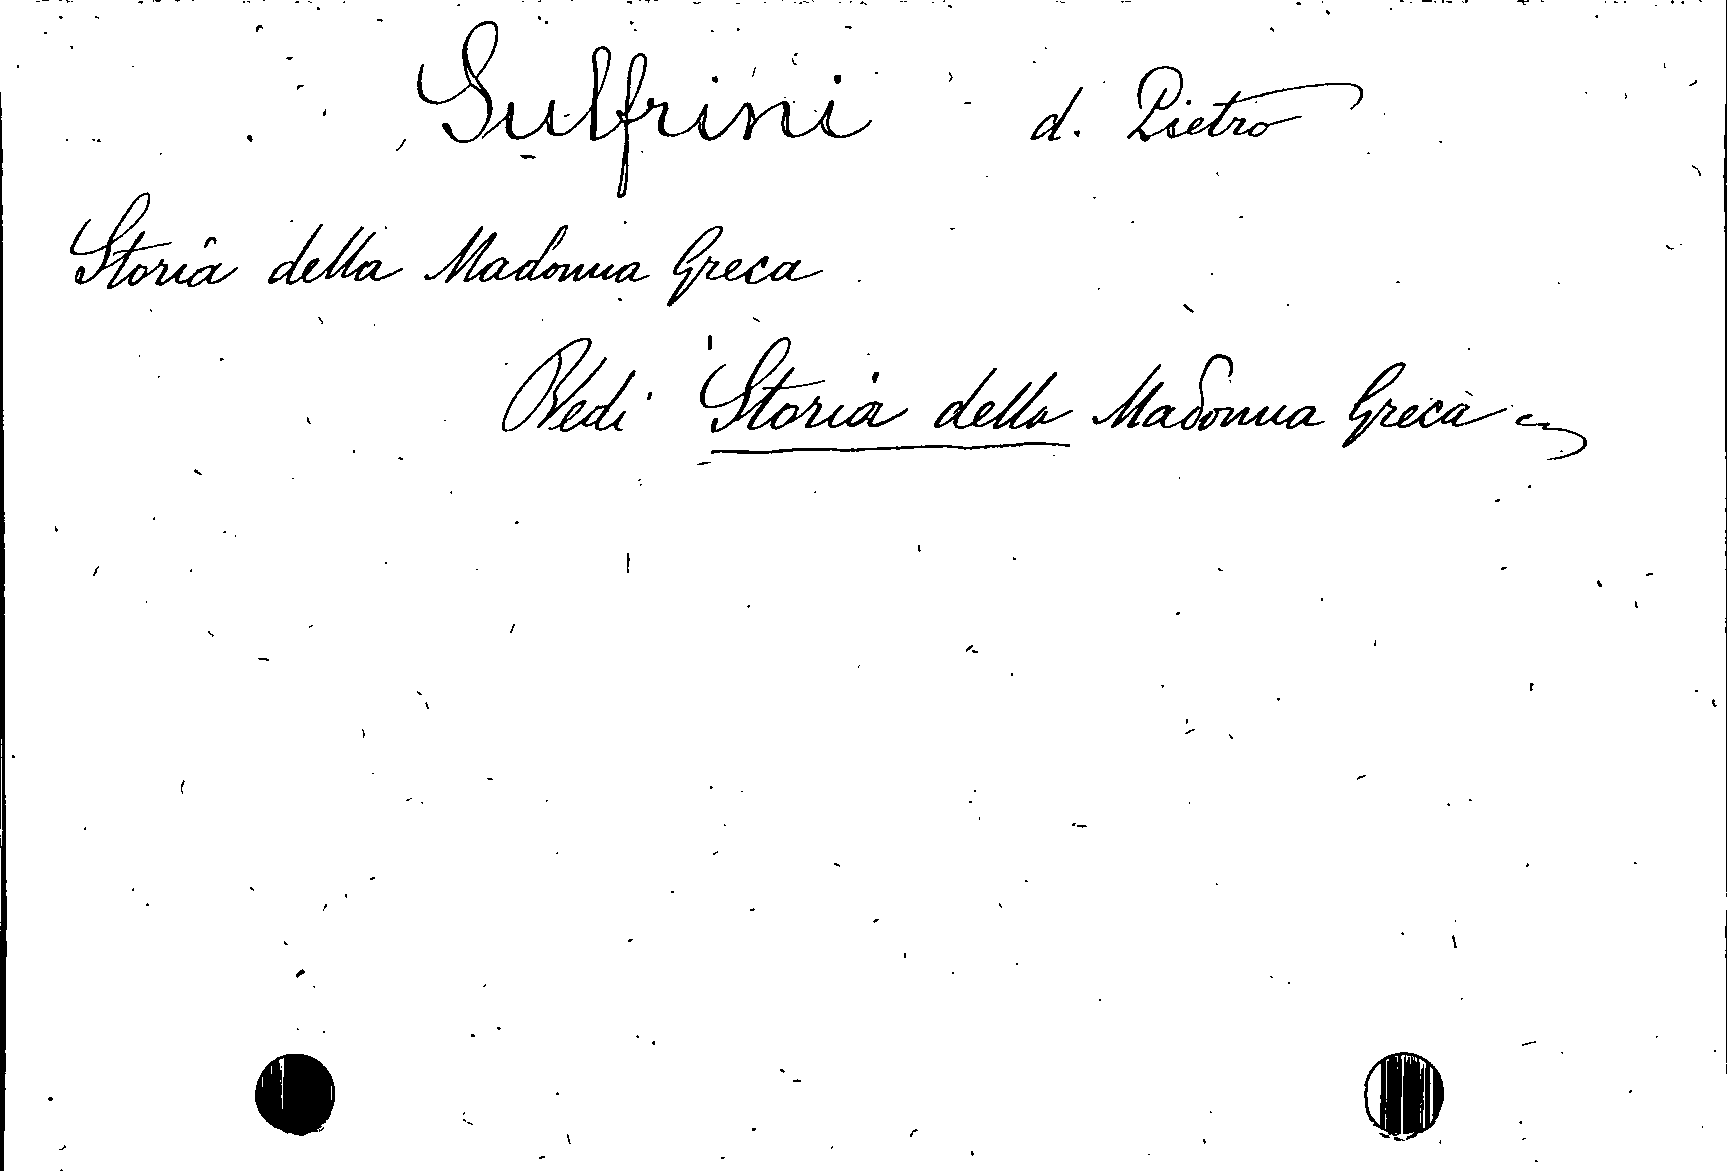 Sulfrini d. Pietro
Storia della Madonna Greca
Vedi Storia della Madonna Greca